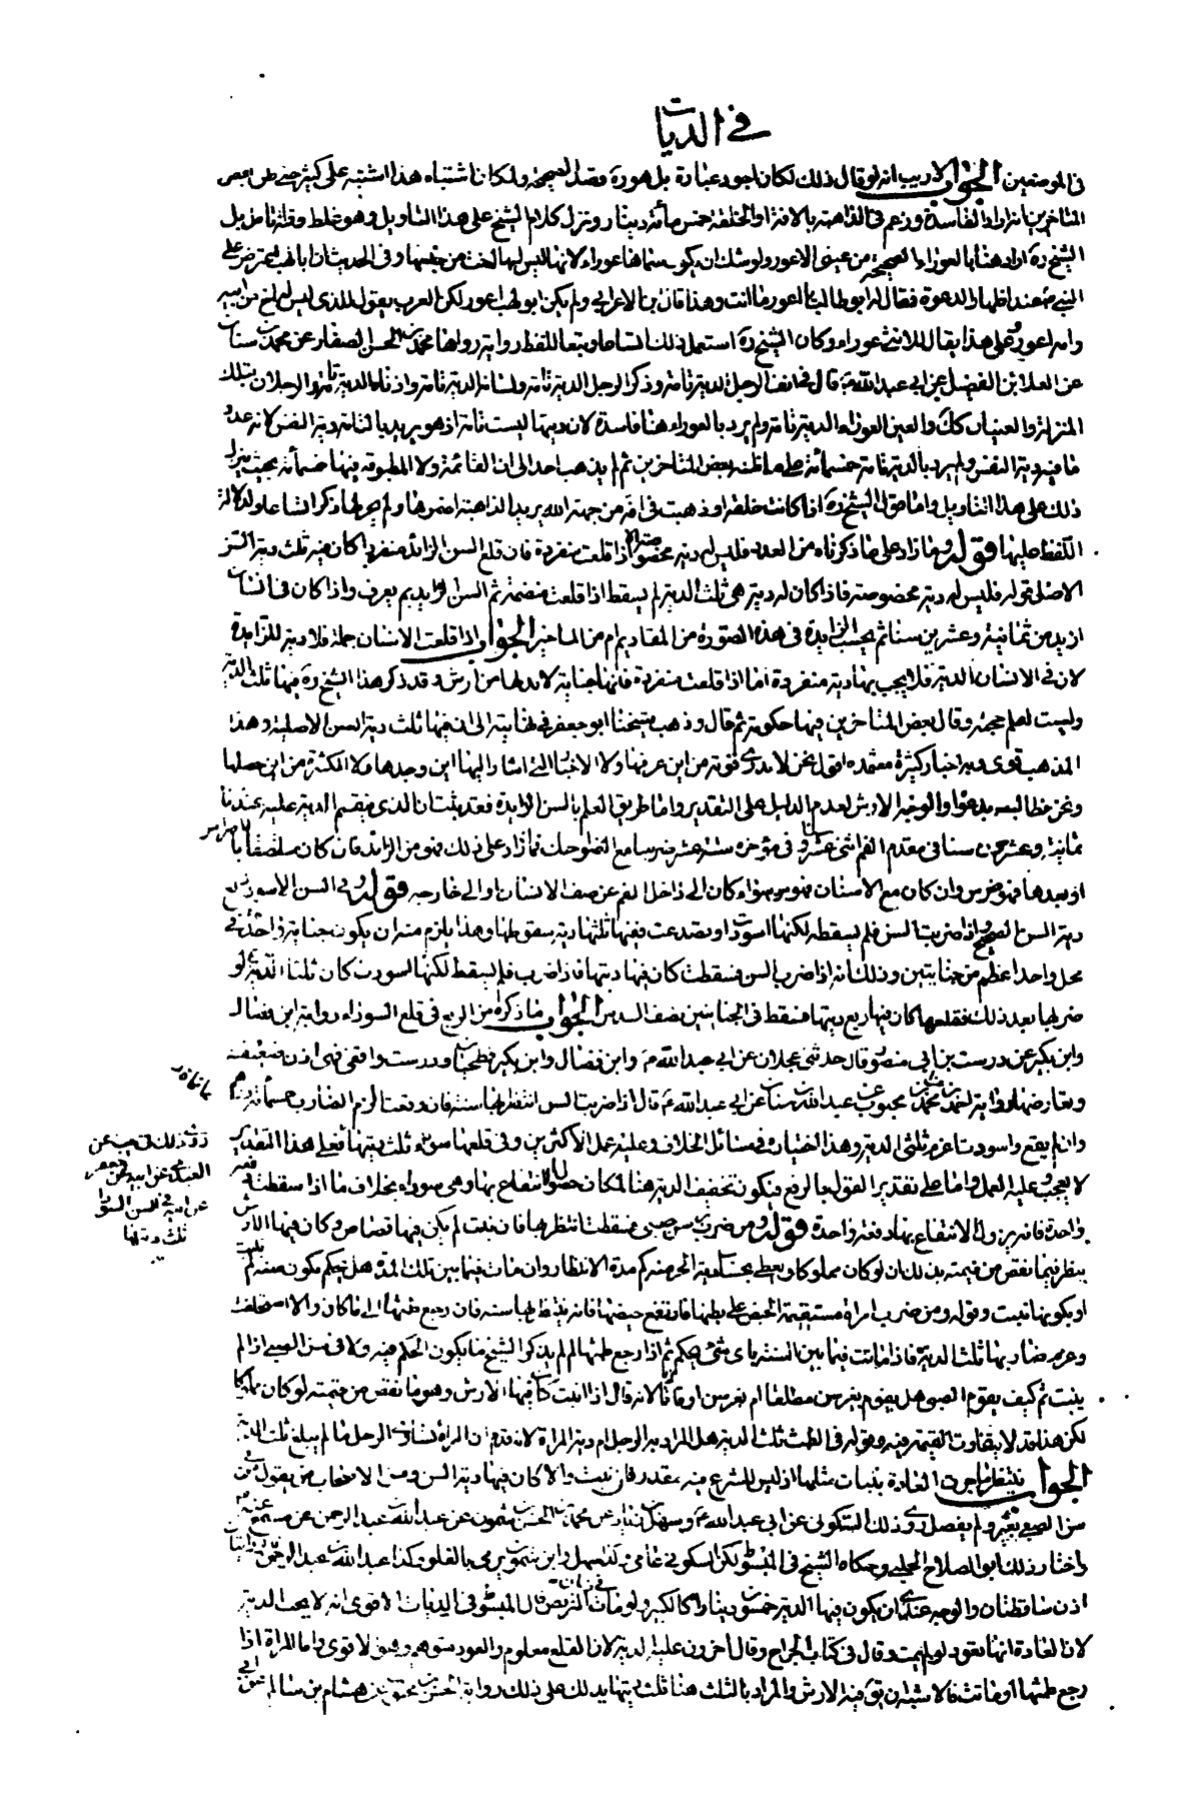 في الديات
في الموضعين الجواب لا ريب انه لو قال ذلك لكان اجود عبارة بل هو ره قصد الصحيحة ولكان اشتباه هذا اشتبه على كثير حتى ظن بعض
المتاخرين انه اراد الفاسدة وزعم في الذاهبة بالافة او الخلقة خمس مأئة دينار ونزل كلام الشيخ على هذا التاويل وهو غلط وقلة تامل بل
الشيخ ره اراد هنا بالعوراء الصحيحة من عيني الاعور ولا شك ان يكون سماها عوراء لانها ليس لها اخت من جنسها وفي الحديث ان ابا لهب اعترض على
النبي ص عند اظهار الدعوة فقال له ابو طالب يا اعور ما انت وهذا قال ابن الاعرابي ولم يكن ابو لهب اعور لكن العرب يقول للذي ليس له اخ من ابيه
وامه اعور وعلى هذا يقال للانثى عوراء وكان الشيخ ره استعمل ذلك اتساعا وتبعا للفظ رواية رواها محمد بن الحسن الصفار عن محمد بن سنان
عن العلا بن الفضيل عن ابي عبد الله ع قال في انف الرجل الدية تامة وذكر الرجل الدية تامة ولسانه الدية تامة واذناه الدية تامة والرجلان بتلك
المنزلة والعينان كك والعين العوراء الدية تامة ولم يرد بالعوراء هنا فاسدة لان ديتها ليست تامة اذ هو يريد بالتامة دية النفس لانه عد
ما فيه دية النفس ولم يرد بالدية تامة خمسمأئة على ما ظنه بعض المتاخرين ثم لم يذهب احد الى ان القائمة ولا المطبوقة فيها خمسمأئة بحيث ينزل
ذلك على هذا التاويل واما قول الشيخ ره اذا كانت خلقة او ذهبت في افة من جهة الله يريد الذاهبة اضمرها ولم يجر لها ذكر اتساعا ولدلالة
اللفظ عليها قوله وما زاد على ما ذكرناه من العدد فليس له دية مخصوصة الا اذا قلعت منفردة فان قلع السن الزائد منفردا كان فيه ثلث دية السن
الاصلي قوله فليس له دية مخصوصة فاذا كان له دية هي ثلث الدية لم يسقط اذا قلعت منضمة ثم السن الزايد بم يعرف واذا كان في انسان
ازيد من ثمانية وعشرين سنا ثم يحسب الزايدة في هذه الصورة من المقاديم ام من الماخير الجواب اذا قلعت الاسنان جملة فلا دية للزايدة
لان في الاسنان الدية فلا يجب بها دية منفردة اما اذا قلعت منفردة فانها جناية لا بد لها من ارش وقد ذكر هذا الشيخ ره فيها ثلث الدية
ولست اعلم حجته وقال بعض المتاخرين فيها حكومة ثم قال وذهب شيخنا ابو جعفر في نهايته الى ان فيها ثلث دية السن الاصلية وهذا
المذهب قوى وبه اخبار كثيرة معتمدة اقول نحن لا ندري قوته من اين عرفها ولا الاخبار التي اشار اليها اين وجدها ولا الكثرة من اين حصلها
ونحن نطالبه بدعواه والوجه الارش لعدم الدليل على التقدير واما طريق العلم بالسن الزايدة فقد بينا ان الذي يقسم الدية عليه عندنا
ثمانية وعشرون سنا في مقدم الفم اثنى عشر وفي مؤخره ستة عشر ضرسا مع الضواحك فما زاد على ذلك فهو من الزائد فان كان ملتصقا بالاضراس
او بعدها فهو ضرس وان كان مع الاسنان فهو سن سواء كان الى داخل الفم عن صف الاسنان او الى خارجه قوله وفي السن الاسود ربع
دية السن الصحيح واذا ضربت السن فلم يسقط لكنها اسودت او تصدعت ففيها ثلثا دية سقوطها وهذا يلزم منه ان يكون جناية واحدة في
محل واحد اعظم من جنايتين وذلك انه اذا ضرب السن فسقطت كان فيها ديتها فاذا ضرب فلم يسقط لكنها اسودت كان ثلثا الدية ولو
ضربها بعد ذلك فقلعها كان فيها ربع ديتها فسقط في الجنايتين نصف السدس الجواب ما ذكره من الربع في قلع السوداء رواية ابن فضال
وابن بكير عن درست بن ابي منصور قال حدثني عجلان عن ابي عبد الله ع وابن فضال وابن بكير فطحيان ودرست واقفي فهي اذن ضعيفة
ويعارضها رواية احمد بن محمد عن ابن محبوب عن عبد الله بن سنان عن ابي عبد الله ع قال اذا ضربت السن انتظر بها سنة فان وقعت الزم الضارب خمسمائة درهم
وان لم يقع واسودت اغرم ثلثي الدية وهذا اختياره في مسائل الخلاف وعليه عمل الاكثرين وفي قلعها سوداء ثلث ديتها فعلى هذا التقدير
لا تعجب وعليه العمل واما على تقدير القول بالربع فيكون تخفيف الدية هنا لمكان حصول الانتفاع بها وهي سوداء بخلاف ما اذا سقطت دفعة
واحدة فانه يزول الانتفاع بها دفعة واحدة قوله ومن ضرب سن صبي فسقطت انتظر بها فان نبتت لم يكن فيها قصاص وكان فيها الارش
ينظر فيما نقص من قيمته بذلك ان لو كان مملوكا ويعطى بحساب دية الحر منه كم مدة الانتظار وان مات فيما بين تلك المدة هل يحكم بكونه ممن لم تنبت
او بكونها نبتت وقوله ومن ضرب امراة مستقيمة الحيض على بطنها فارتفع حيضها فانه ينتظر بها سنة فان رجع طمثها الى ما كان والا استحلفت
وغرم ضاربها ثلث الدية فاذا ماتت فيما بين السنة باي شئ يحكم ثم اذا رجع طمثها لم لم يذكر الشيخ ما يكون الحكم فيه ولا في سن الصبي اذا لم
ينبت ثم كيف يقوم الصبي هل يقوم بغير سن مطلقا ام بغير سن اوقاتا لانه قال اذا نبتت كان فيها الارش وهو ما نقص من قيمته لو كان مملوكا
لكن هذا قد لا يتفاوت القيمة فيه وقوله في الطمث ثلث الدية هل المراد دية الرجل ام دية المراة لانه قدم ان المراة تساوي الرجل ما لم يبلغ ثلث الدية
الجواب ينتظر ما جرت العادة بنبات مثلها اذ ليس للشرع فيه مقدر فان نبتت والا كان فيها دية السن ومن الاصحاب من يقول في
سن الصبي بعير ولم يفصل روى ذلك السكوني عن ابي عبد الله ع وسهل بن زياد عن محمد بن الحسن بن شمون عن عبد الله بن عبد الرحمن عن مسمع عنه ع
واختار ذلك ابو الصلاح الحلبي وحكاه الشيخ في المبسوط لكن السكوني عامي وكذا سهل وابن شمون يرمى بالغلو وكذا عبد الله بن عبد الرحمن فالروايتان
اذن ساقطتان والوجه عندي ان يكون فيها الدية خمسون دينارا كالكبير ولو مات في زمان التربص قال المبسوط في الديات الاقوى انه لا يجب الدية
لان العادة انها تعود لو لم يمت وقال في كتاب الجراح وقال اخرون عليه الدية لان القلع معلوم والعود متوهم وهو الاقوى واما المراة اذا
رجع طمثها او ماتت فالاشبه ان يق فيه الارش والمراد بالثلث هنا ثلث ديتها يدل على ذلك رواية الحسن بن محبوب عن هشام بن سالم عن ابي
روى ذلك في حديث عن
العبدي عن ابيه عن جعفر
عن ابيه في السن السودا
ثلث ديتها